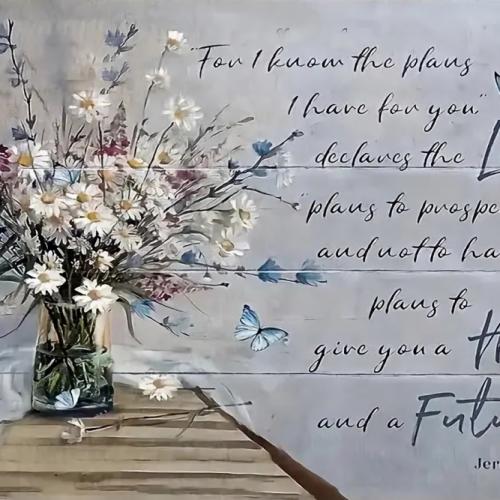 "For I know the plans
I have for you"
declares the L
"plans to prospe
and not to ha
plans to
give you a H
and a Futu
Jer